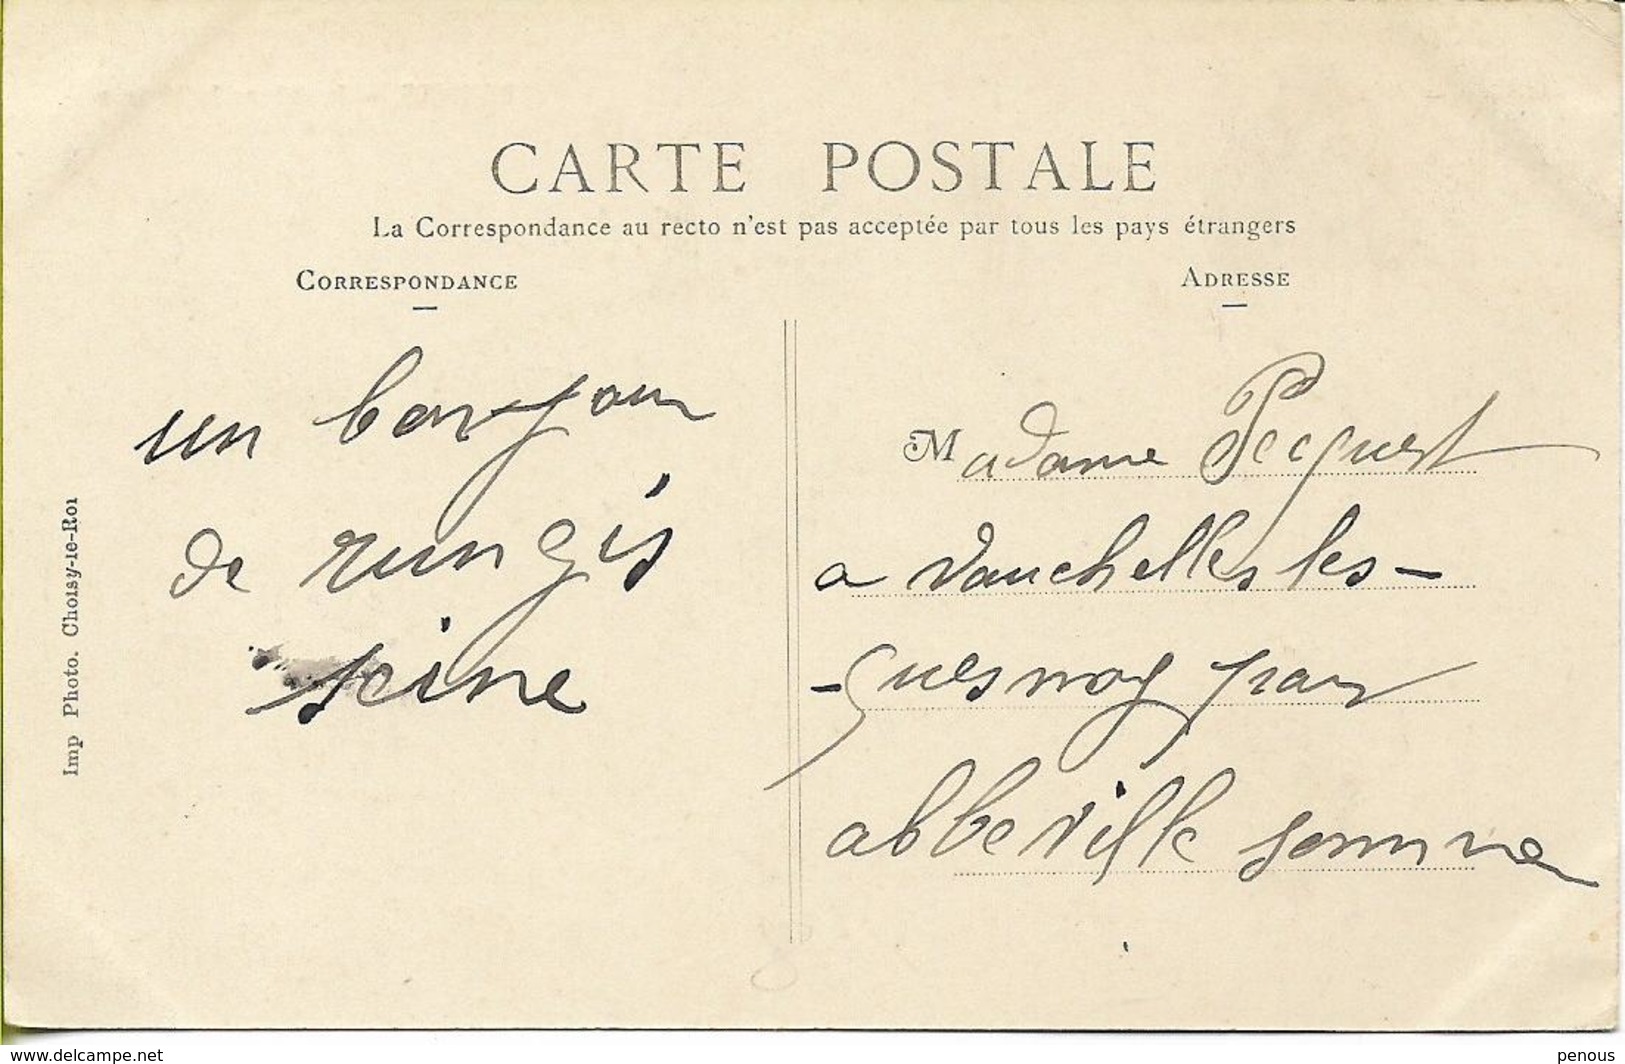 CARTE POSTALE
La Correspondance au recto n'est pas acceptée par tous les pays étrangers
CORRESPONDANCE
ADRESSE
un bonjour
de rungis
seine
Madame Pecquest
a Vauchelles les-
-quesnoy par
abbeville somme
Imp Photo. Choisy-le-Roi
www.delcampe.net
penous